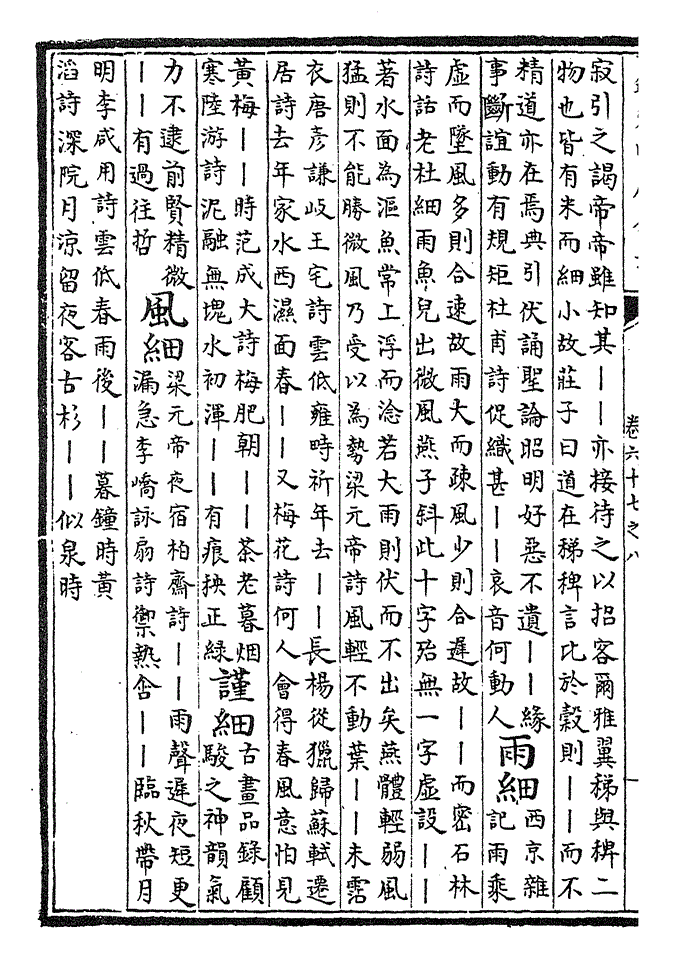 卷六十七之八
寂引之謁帝帝雖知其——亦接待之以招客爾雅翼稊與稗二
物也皆有米而細小故莊子曰道在稊稗言比於穀則——而不
精道亦在焉典引伏誦聖論昭明好惡不遺——緣
事斷誼動有規矩杜甫詩促織甚——哀音何動人
雨細
西京雜
記雨乘
虛而墜風多則合速故雨大而疎風少則合遲故——而密石林
詩話老杜細雨魚兒出微風燕子斜此十字殆無一字虛設——
著水面為漚魚常上浮而淰若大雨則伏而不出矣燕體輕弱風
猛則不能勝微風乃受以為勢梁元帝詩風輕不動葉——未霑
衣唐彥謙岐王宅詩雲低雍時祈年去——長楊從獵歸蘇軾遷
居詩去年家水西濕面春——又梅花詩何人會得春風意怕見
黃梅——時范成大詩梅肥朝——茶老暮烟
寒陸游詩泥融無塊水初渾——有痕秧正綠
謹細
古畫品錄顧
駿之神韻氣
力不逮前賢精微
——有過往哲
風細
梁元帝夜宿柏齋詩——雨聲遲夜短更
漏急李嶠詠扇詩禦熱含——臨秋帶月
明李咸用詩雲低春雨後——暮鐘時黃
滔詩深院月涼留夜客古杉——似泉時